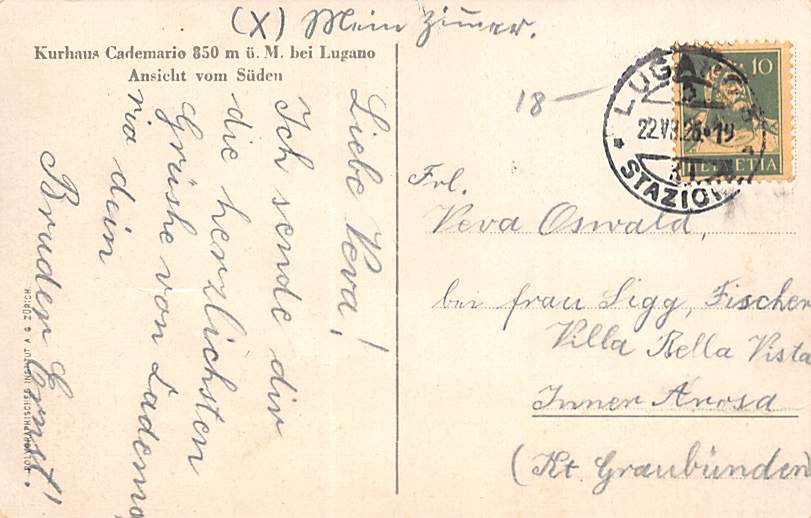 (X) Mein Zimmer.
Kurhaus Cademario 850 m ü. M. bei Lugano
Ansicht vom Süden
Liebe Veva!
Ich sende dir
die herzlichsten
Grüshe von Cadema
rio dein
Bruder Ernst!
POLYGRAPHISCHES INSTITUT A. G. ZÜRICH.
18 —
10
HELVETIA
LUGANO
STAZIONE
Frl.
Veva Oswald,
bei frau Sigg, Fischer
Villa Bella Vista
Inner Arosa
(Kt Graubünden